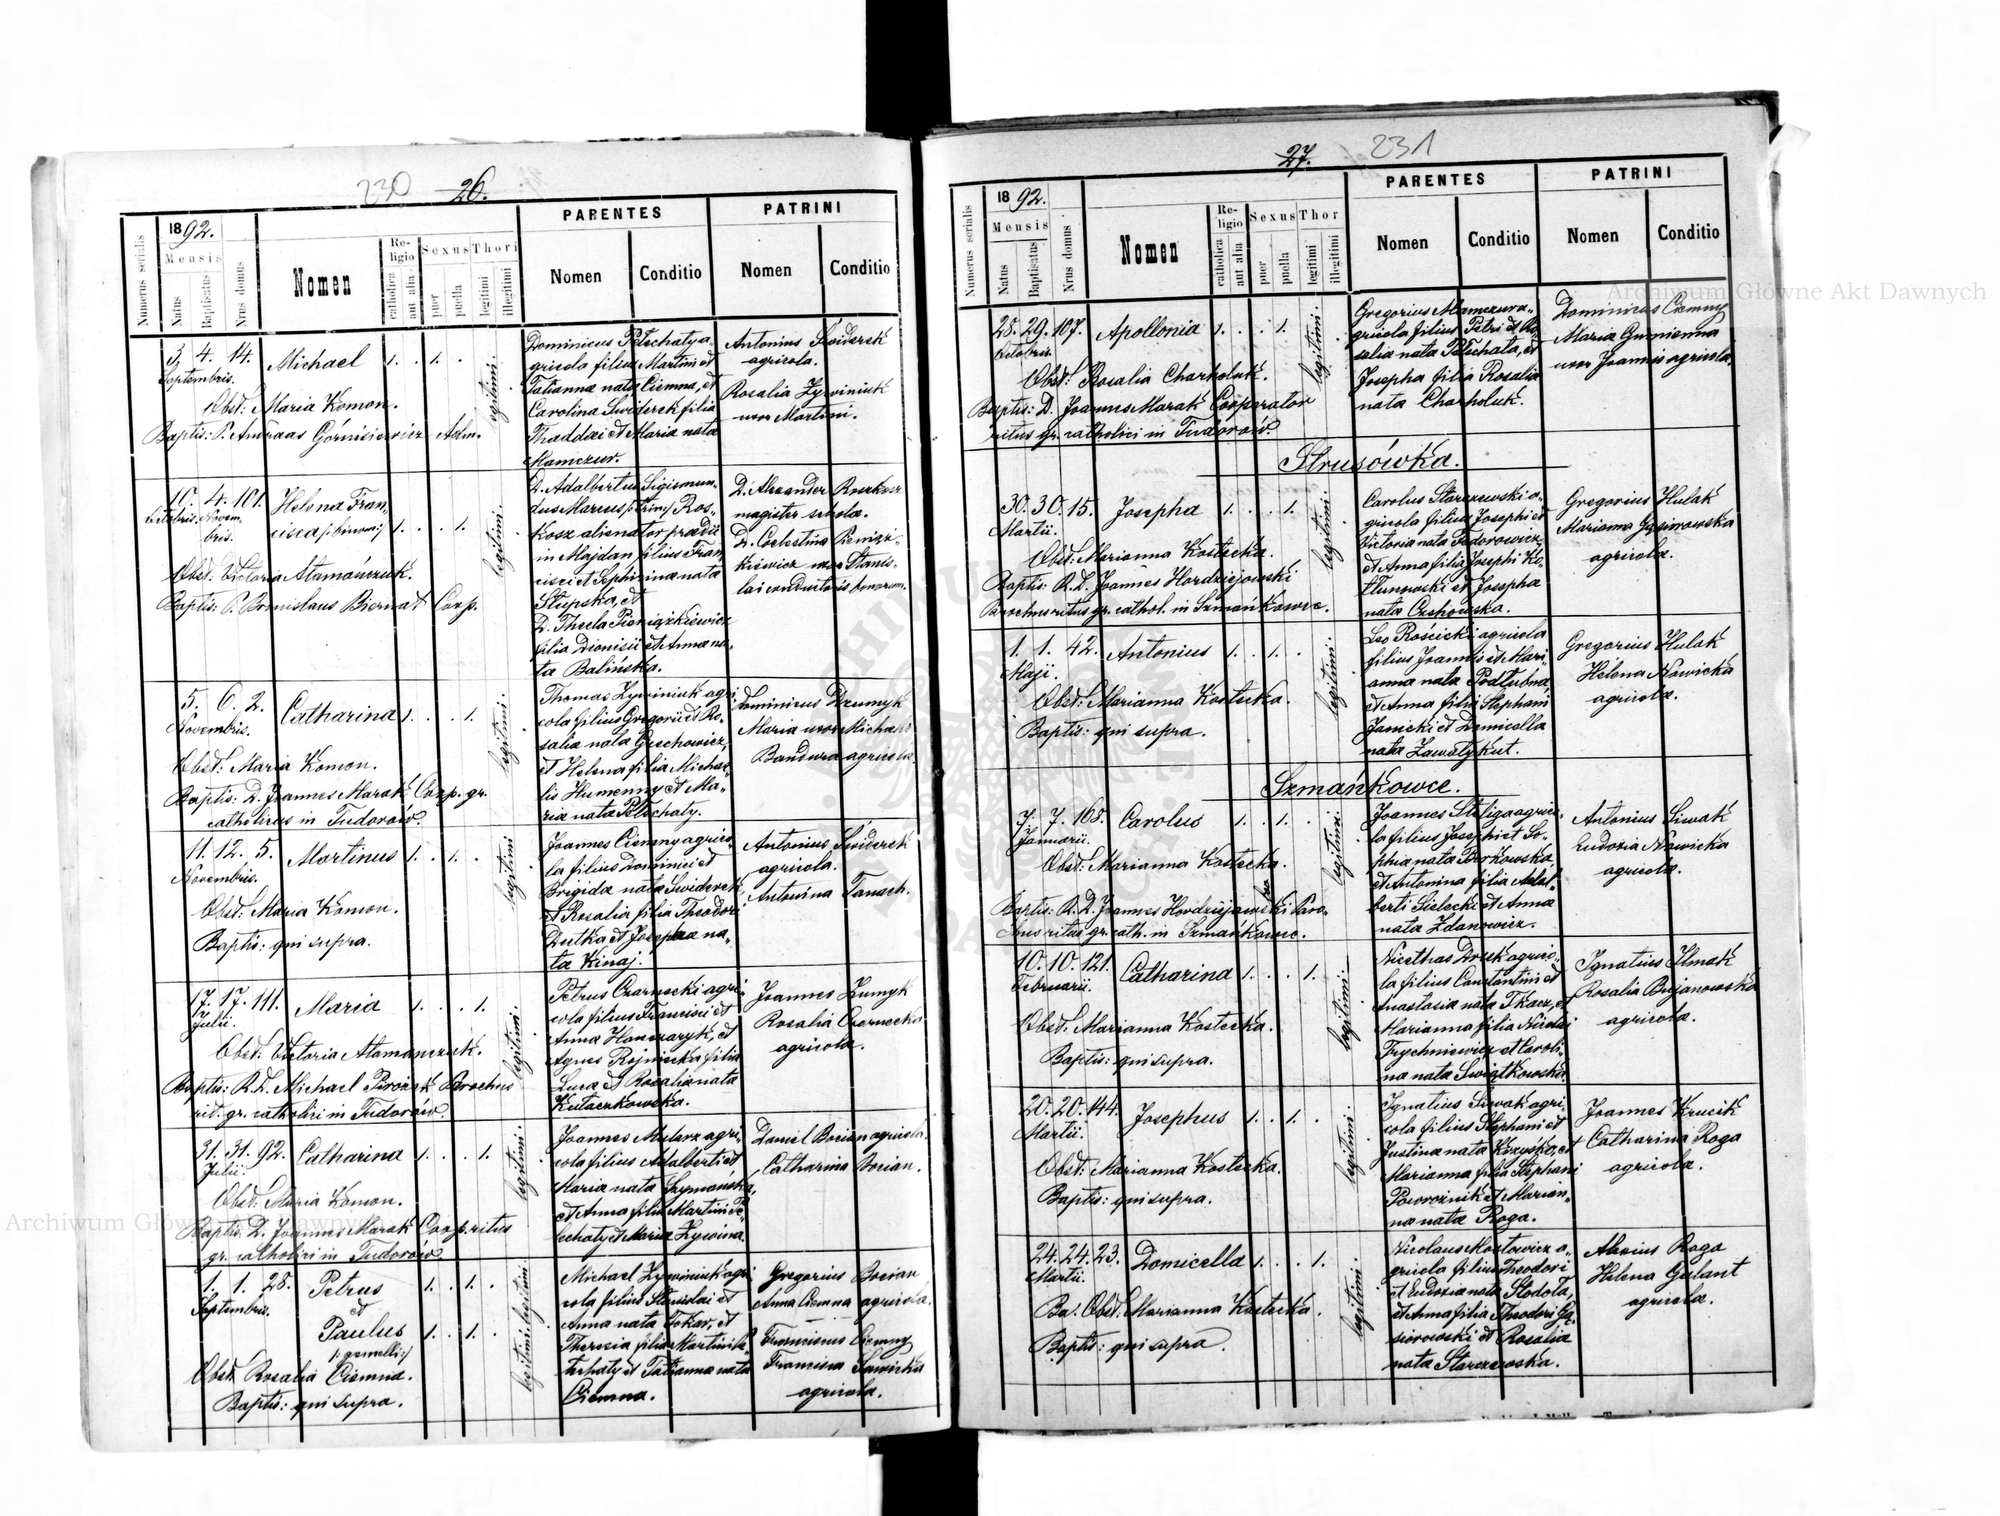 230 26.
Numerus serialis
1892.
Mensis
Natus
Baptisatus
Nrus domus
Nomen
Religio
catholica
aut alia
Sexus
puer
puella
Thori
legitimi
illegitimi
PARENTES
Nomen
Conditio
PATRINI
Nomen
Conditio
3. 4. 14. Michael 1. . 1. .
Septembris.
Obst: Maria Komon.
Baptis: P. Andreas Górnisiewicz Adm.
legitimi.
Dominicus Pełechaty a
gricola filius Martini et
Tatianna nata Ciemna, et
Carolina Świderek filia
Thaddai et Maria nata
Mamczur.
Antonius Świderek
agricola.
Rosalia Żywiniuk
uxor Martini.
10. 4. 101. Helena Fran
Octobris. Novem
bris. cisca /:binomi:/ 1. . . 1.
Obst: Victoria Atamańczuk.
Baptis: P. Bronislaus Biernat Coop.
legitimi.
D. Adalbertus Sigismun
dus Marcus /:trinom:/ Ros
kosz alienator praedii
in Majdan filius Fran
cisci et Sephirina nata
Słupska, et
D. Thecla Pieniążkiewicz
filia Dionisii et Anna na
ta Balińska.
D. Alexander Roszkosz
magister schola.
D. Coelestina Pieniąż
kiewicz uxor Stanis
lai conductoris bonorum.
5. 6. 2. Catharina 1. . . 1.
Novembris.
Obst: Maria Komon.
Baptis: D. Joannes Marak Coop. gr.
catholicus in Tudorów.
legitimi.
Thomas Żywiniuk agri
cola filius Gregorii et Ro
salia nata Greschowicz,
et Helena filia Micha
lis Humenny et Ma
ria nata Pełechaty.
Dominicus Dzumyk
Maria uxor Michaeli
Bandura agricola.
11. 12. 5. Martinus 1. . 1. .
Novembris.
Obst: Maria Komon.
Baptis: qui supra.
legitimi
Joannes Ciemny agrico
la filius Dominici et
Brigida nata Świderek
et Rosalia filia Theodori
Dutka et Josepha na
ta Kinaj.
Antonius Świderek
agricola.
Antonina Tanach.
17. 17. 111. Maria 1. . . 1.
Julii.
Obst: Victoria Atamańczuk.
Baptis: R. D. Michael Parochus
rit. gr. catholici in Tudorów.
legitimi.
Petrus Czarnecki agri
cola filius Francisci et
Anna Hanczaryk, et
Agnes Rojnicka filia
Luca et Rosalia nata
Kutaczkowska.
Joannes Żumyk
Rosalia Czarnecka
agricola.
31. 31. 92. Catharina 1. . . 1.
Julii.
Obst: Maria Komon.
Baptis: D. Joannes Marak Coop. ritus
gr. catholici in Tudorów
legitimi.
Joannes Mularz agri
cola filius Adalberti et
Maria nata Szymańska,
et Anna filia Martini Pe
lechaty et Maria Żywina
Daniel Bocian agricola.
Catharina Bocian.
1. 1. 28. Petrus 1. . 1. .
Septembris. et
Paulus 1. . 1. .
/:gemelli:/
Obst. Rosalia Ciemna.
Baptis: qui supra.
legitimi. legitimi
Michael Żywiniuk agri
cola filius Stanislai et
Anna nata Tokar, et
Theresia filia Martini Pe
lechaty et Tatianna nata
Ciemna.
Gregorius Bocian
Anna Ciemna agricola.
Franciscus Ciemny
Francisca Sawicka
agricola.
27. 231
Numerus serialis
1892.
Mensis
Natus
Baptisatus
Nrus domus
Nomen
Religio
catholica
aut alia
Sexus
puer
puella
Thor
legitimi
illegitimi
PARENTES
Nomen
Conditio
PATRINI
Nomen
Conditio
28. 29. 107. Apollonia 1. . . 1.
Octobris.
Obst: Rosalia Charkoluk.
Baptis: D. Joannes Marak Cooperator
ritus gr. catholici in Tudorów.
legitimi.
Gregorius Mamczur a
gricola filius Petri et Ro
salia nata Pełechata, et
Josepha filia Rosalia
nata Charkoluk.
Dominicus Ciemny
Maria Gumienna
uxor Joannis agricola.
Strusówka.
30. 30. 15. Josepha 1. . . 1.
Martii.
Obst: Marianna Kostecka.
Baptis: R. D. Joannes Hordziejowski
Parochus ritus gr. cathol. in Szmańkowce.
legitimi.
Carolus Starzewski a
gricola filius Josephi et
Victoria nata Fedorowicz,
et Anna filia Josephi Ko
łtunowski et Josepha
nata Czehowska.
Gregorius Hulak
Marianna Gąsiorowska
agricola.
1. 1. 42. Antonius 1. . 1. .
Maji.
Obst: Marianna Kostecka.
Baptis: qui supra.
legitimi.
Leo Rościcki agricola
filius Joannis et Mari
anna nata Podłubna,
et Anna filia Stephani
Janicki et Domicella
nata Zawałykut.
Gregorius Hulak
Helena Nowicka
agricola.
Szmańkowce.
7. 7. 168. Carolus 1. . 1. .
Januarii.
Obst: Marianna Kostecka.
Baptis: R. D. Joannes Hordziejowski Paro
chus ritus gr. cath. in Szmańkowce.
legitimi.
Joannes Steliga agrico
la filius Josephi et So
phia nata Borkowska,
et Antonina filia Adal
berti Sielecki et Anna
nata Zdanowicz.
Antonius Siwak
Eudoxia Nowicka
agricola.
10. 10. 121. Catharina 1. . . 1.
Februarii.
Obst: Marianna Kostecka.
Baptis: qui supra.
legitimi.
Nicethas Druk agrico
la filius Constantini et
Anastasia nata Tkacz, et
Marianna filia Nicolai
Trychniewicz et Caroli
na nata Świątkowska.
Ignatius Ilmak
Rosalia Bujanowska
agricola.
20. 20. 144. Josephus 1. . 1. .
Martii.
Obst: Marianna Kostecka.
Baptis: qui supra.
legitimi.
Ignatius Siwak agri
cola filius Stephani et
Justina nata Kozuśko, et
Marianna filia Stephani
Poworoźnik et Marian
na nata Roga.
Joannes Krucik
Catharina Roga
agricola.
24. 24. 23. Domicella 1. . . 1.
Martii.
Ba. Obst: Marianna Kostecka.
Baptis: qui supra.
legitimi.
Nicolaus Mostowicz a
gricola filius Theodori
et Eudoxia nata Stodoła,
et Anna filia Theodori Gą
siorowski et Rosalia
nata Starzewska.
Alexius Roga
Helena Gulant
agricola.
Archiwum Główne Akt Dawnych
Archiwum Główne Akt Dawnych